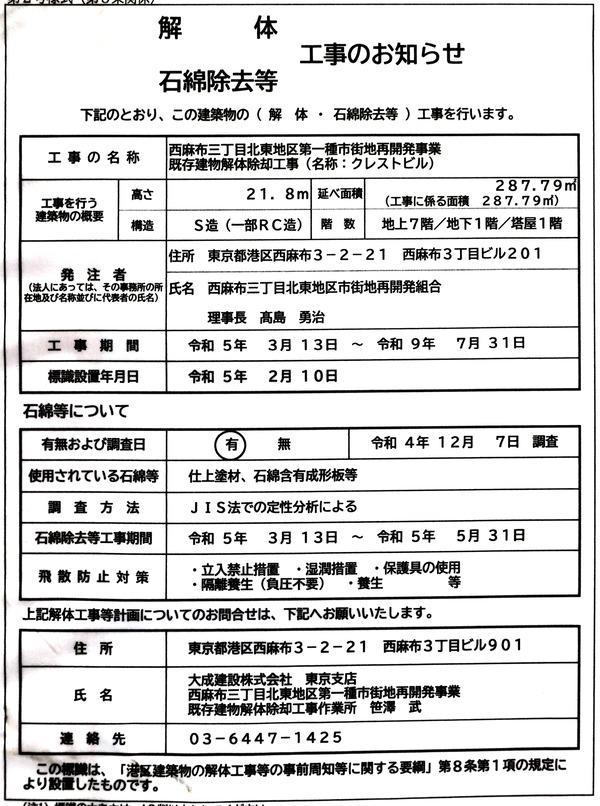 解　体
工事のお知らせ
石綿除去等
下記のとおり、この建築物の（ 解　体 ・ 石綿除去等 ）工事を行います。
工事の名称
西麻布三丁目北東地区第一種市街地再開発事業
既存建物解体除却工事（名称：クレストビル）
工事を行う
建築物の概要
高さ
２１．８ｍ
延べ面積
２８７.７９㎡
（工事に係る面積　２８７.７９㎡）
構造
Ｓ造（一部ＲＣ造）
階　数
地上７階／地下１階／塔屋１階
発　注　者
（法人にあっては、その事務所の所
在地及び名称並びに代表者の氏名）
住所　東京都港区西麻布３－２－２１　西麻布３丁目ビル２０１
氏名　西麻布三丁目北東地区市街地再開発組合
理事長　髙島　勇治
工　事　期　間
令和 ５年　３月 １３日　～　令和 ９年　７月 ３１日
標識設置年月日
令和 ５年　２月 １０日
石綿等について
有無および調査日
有　無
令和 ４年 １２月　７日　調査
使用されている石綿等
仕上塗材、石綿含有成形板等
調　査　方　法
ＪＩＳ法での定性分析による
石綿除去等工事期間
令和 ５年　３月 １３日　～　令和 ５年　５月 ３１日
飛散防止対策
・立入禁止措置　・湿潤措置　・保護具の使用
・隔離養生（負圧不要）　・養生　　　　等
上記解体工事等計画についてのお問合せは、下記へお願いいたします。
住　所
東京都港区西麻布３－２－２１　西麻布３丁目ビル９０１
氏　名
大成建設株式会社　東京支店
西麻布三丁目北東地区第一種市街地再開発事業
既存建物解体除却工事作業所　笹澤　武
連　絡　先
０３－６４４７－１４２５
この標識は、「港区建築物の解体工事等の事前周知等に関する要綱」第８条第１項の規定に
より設置したものです。